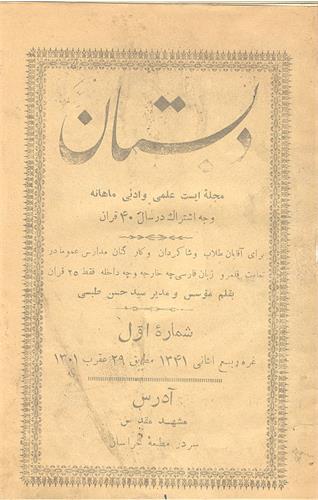 دبستان
مجله ایست علمی و ادبی ماهانه
وجه اشتراک در سال ۴۰ قران
برای آقایان طلاب و شاگردان و کارکنان مدارس عموما در
تمامت قلمرو زبان فارسی چه خارجه و چه داخله فقط ۲۵ قران
بقلم مؤسس و مدیر سید حسن طبسی
شمارهٔ اول
غره ربیع الثانی ۱۳۴۱ مطابق ۲۹ عقرب ۱۳۰۱
آدرس
مشهد مقدس
سردر مطبعهٔ خراسان
۱